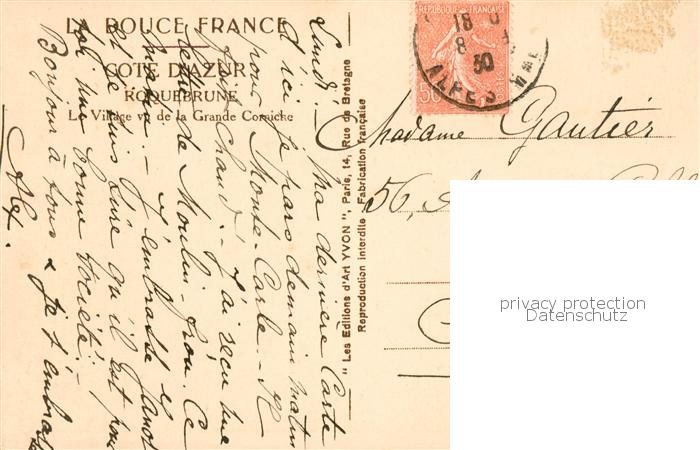 LA DOUCE FRANCE
COTE D'AZUR
ROQUEBRUNE
Le Village vu de la Grande Corniche
Lundi. - Ma dernière Carte
d'ici, je pars demain matin
pour Monte-Carlo. - Il
fait chaud. - J'ai reçu une
lettre de Moulin-
matin. - J'embrasse
et je suis sûre qu'il est pour
toi une bonne Société.
Bonjour à tous & je t'embrasse
Alex.
"Les Editions d'Art YVON", Paris, 14, Rue de Bretagne
Reproduction interdite Fabrication française
REPUBLIQUE FRANÇAISE
50
18
8
30
ALPES MME
Madame Gautier
56, A
privacy protection
Datenschutz